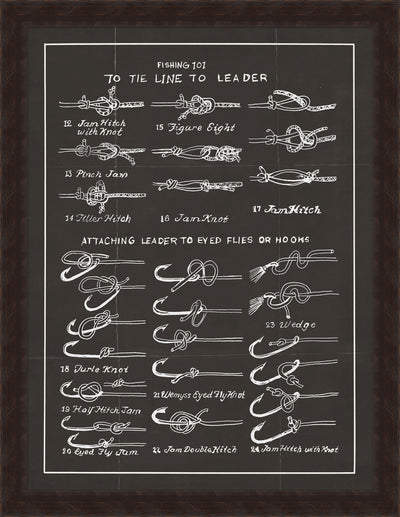 FISHING 101
TO TIE LINE TO LEADER
12 Jam Hitch
with Knot
15 Figure Eight
13 Pinch Jam
14 Tiller Hitch
16 Jam Knot
17 Jam Hitch
ATTACHING LEADER TO EYED FLIES OR HOOKS
18 Turle Knot
19 Half Hitch Jam
20 Eyed Fly Jam
21 Wemyss Eyed Fly Knot
22 Jam Double Hitch
23 Wedge
24 Jam Hitch with Knot